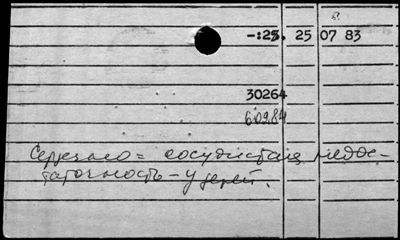 25 07 83
30264
6.09.84
Сердечно = сосудистая недос-
таточность – у детей.